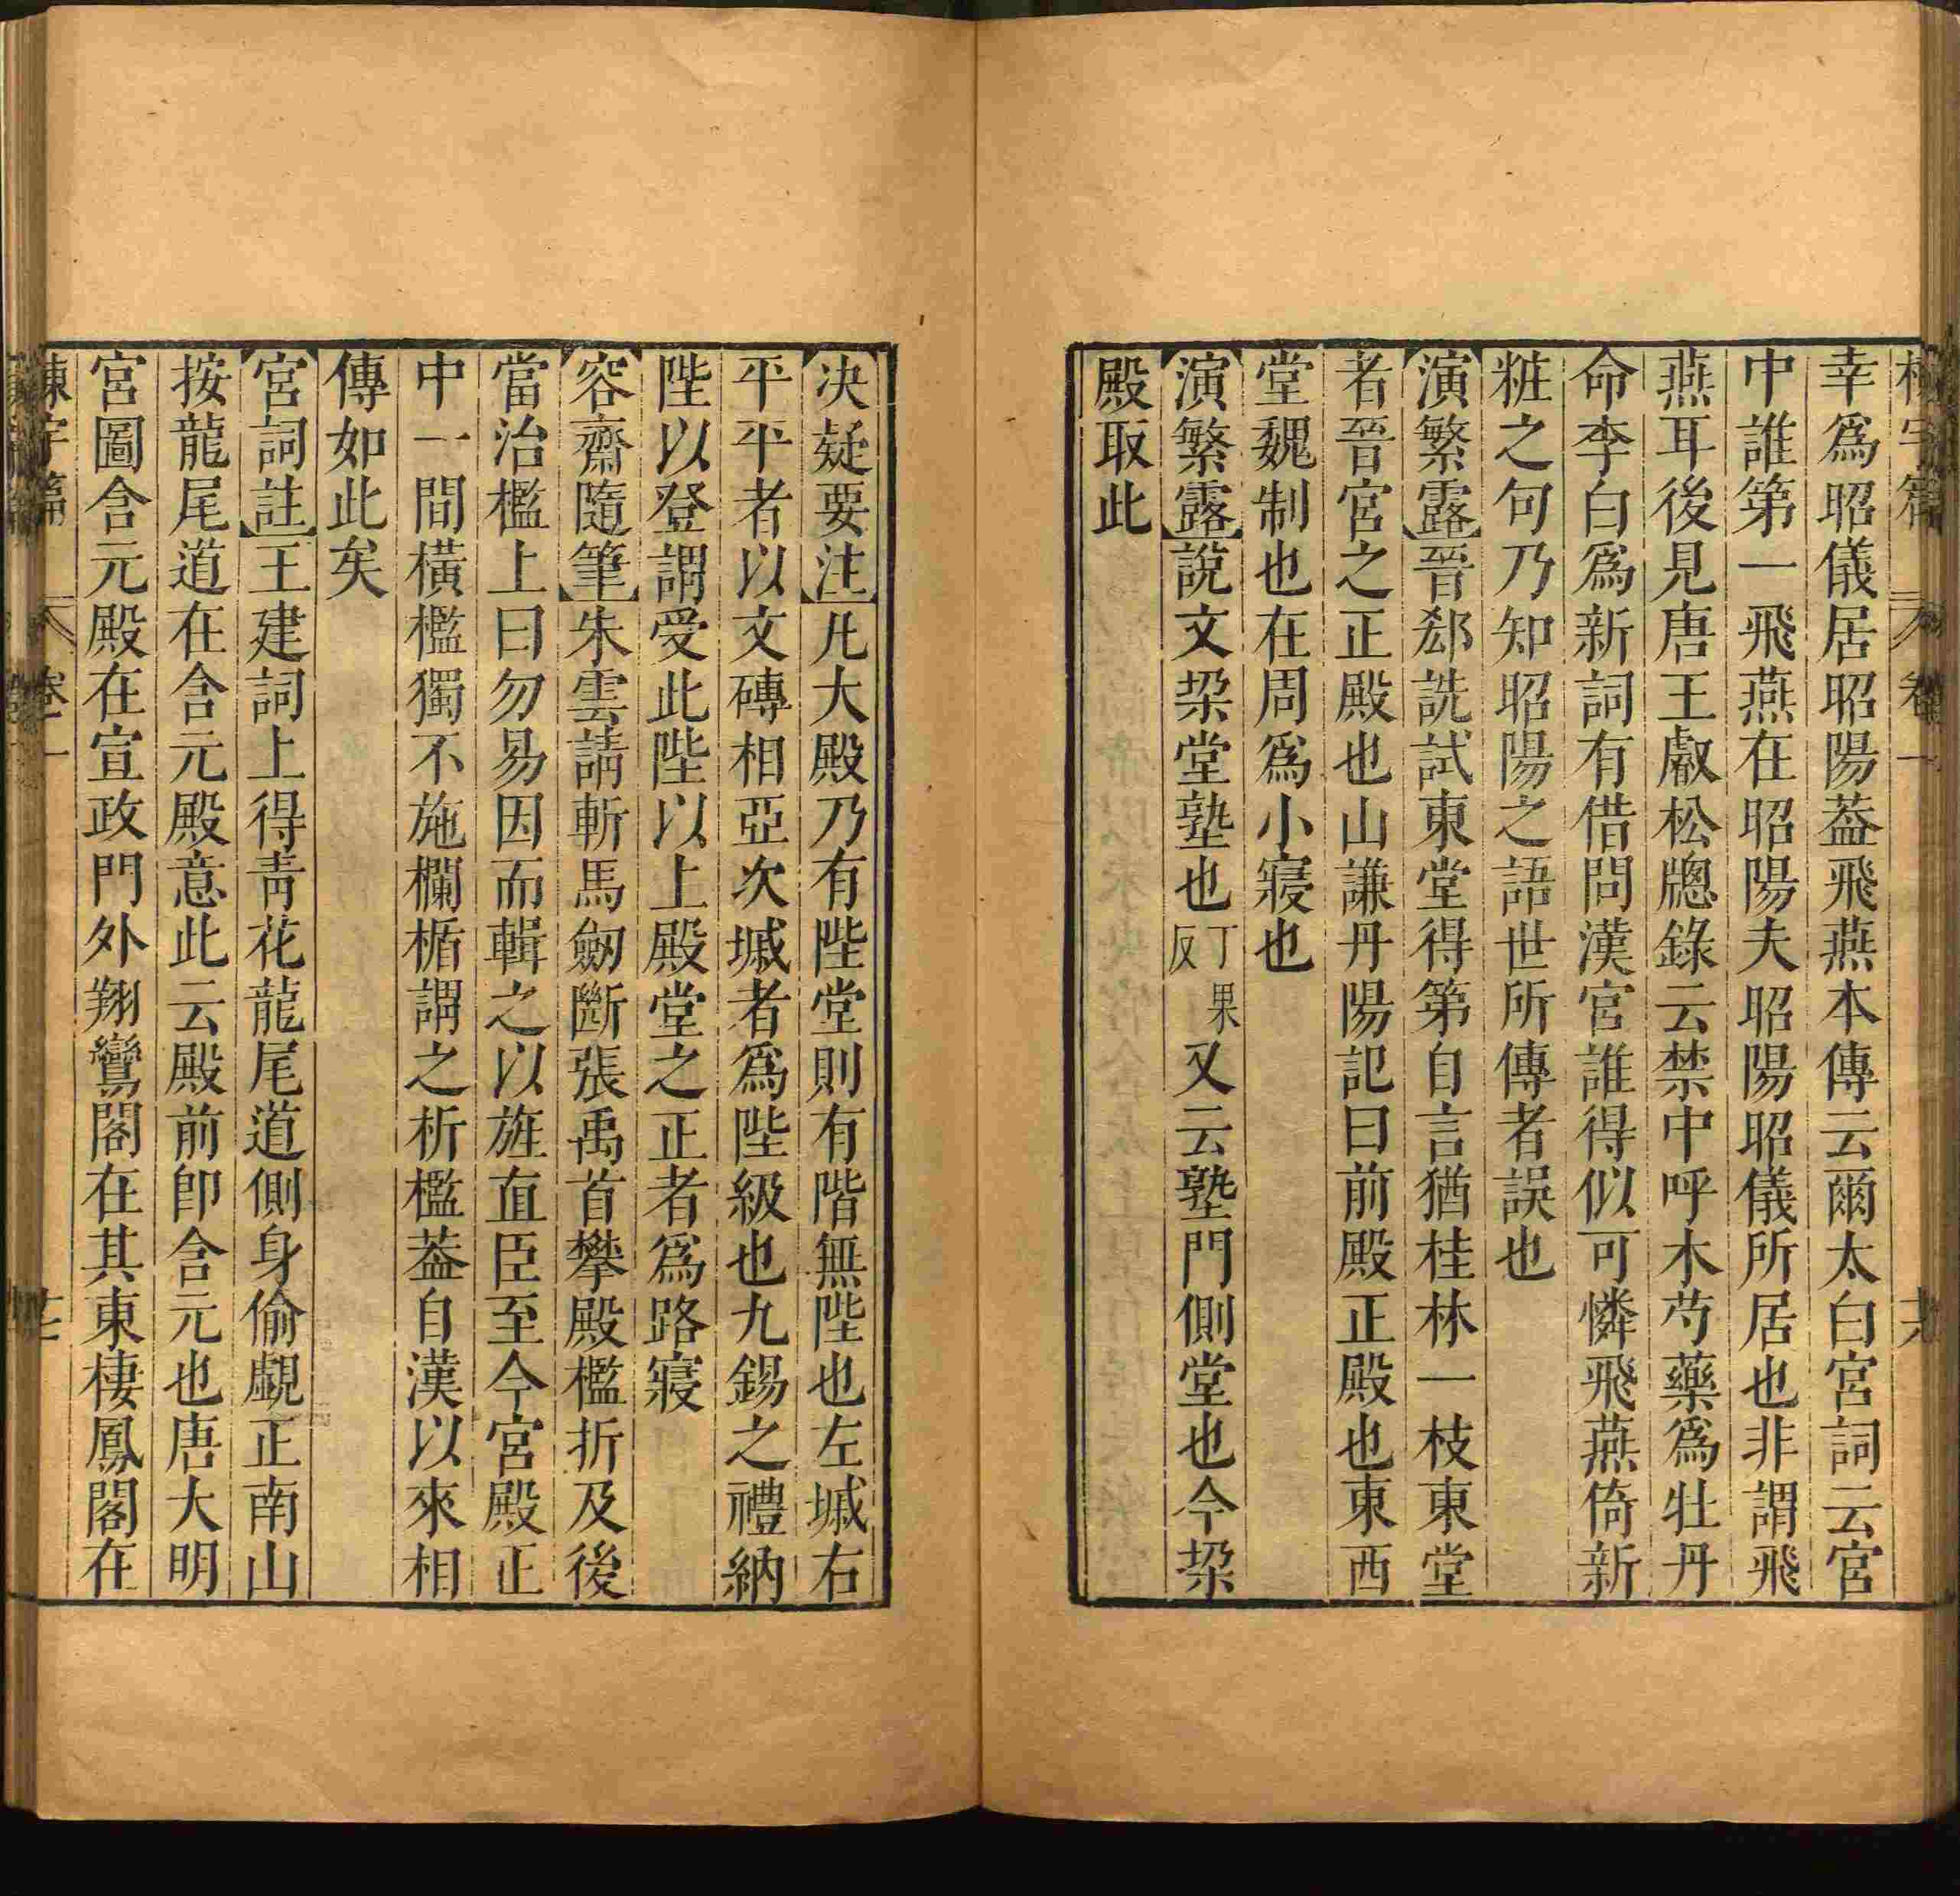 卷一
幸爲昭儀居昭陽葢飛燕本傳云爾太白宮詞云宮
中誰第一飛燕在昭陽夫昭陽昭儀所居也非謂飛
燕耳後見唐王叡松牕錄云禁中呼木芍藥爲牡丹
命李白爲新詞有借問漢宮誰得似可憐飛燕倚新
粧之句乃知昭陽之語世所傳者誤也
演繁露晉郄詵試東堂得第自言猶桂林一枝東堂
者晉宮之正殿也山謙丹陽記曰前殿正殿也東西
堂魏制也在周爲小寢也
演繁露說文垜堂塾也丁果反又云塾門側堂也今垜
殿取此
决疑要注凡大殿乃有陛堂則有階無陛也左墄右
平平者以文磚相亞次墄者爲陛級也九錫之禮納
陛以登謂受此陛以上殿堂之正者爲路寢
容齋隨筆朱雲請斬馬劒斷張禹首攀殿檻折及後
當治檻上曰勿易因而輯之以旌直臣至今宮殿正
中一間橫檻獨不施欄楯謂之析檻葢自漢以來相
傳如此矣
宮詞註王建詞上得青花龍尾道側身偷覷正南山
按龍尾道在含元殿意此云殿前卽含元也唐大明
宮圖含元殿在宣政門外翔鸞閣在其東棲鳳閣在
卷一